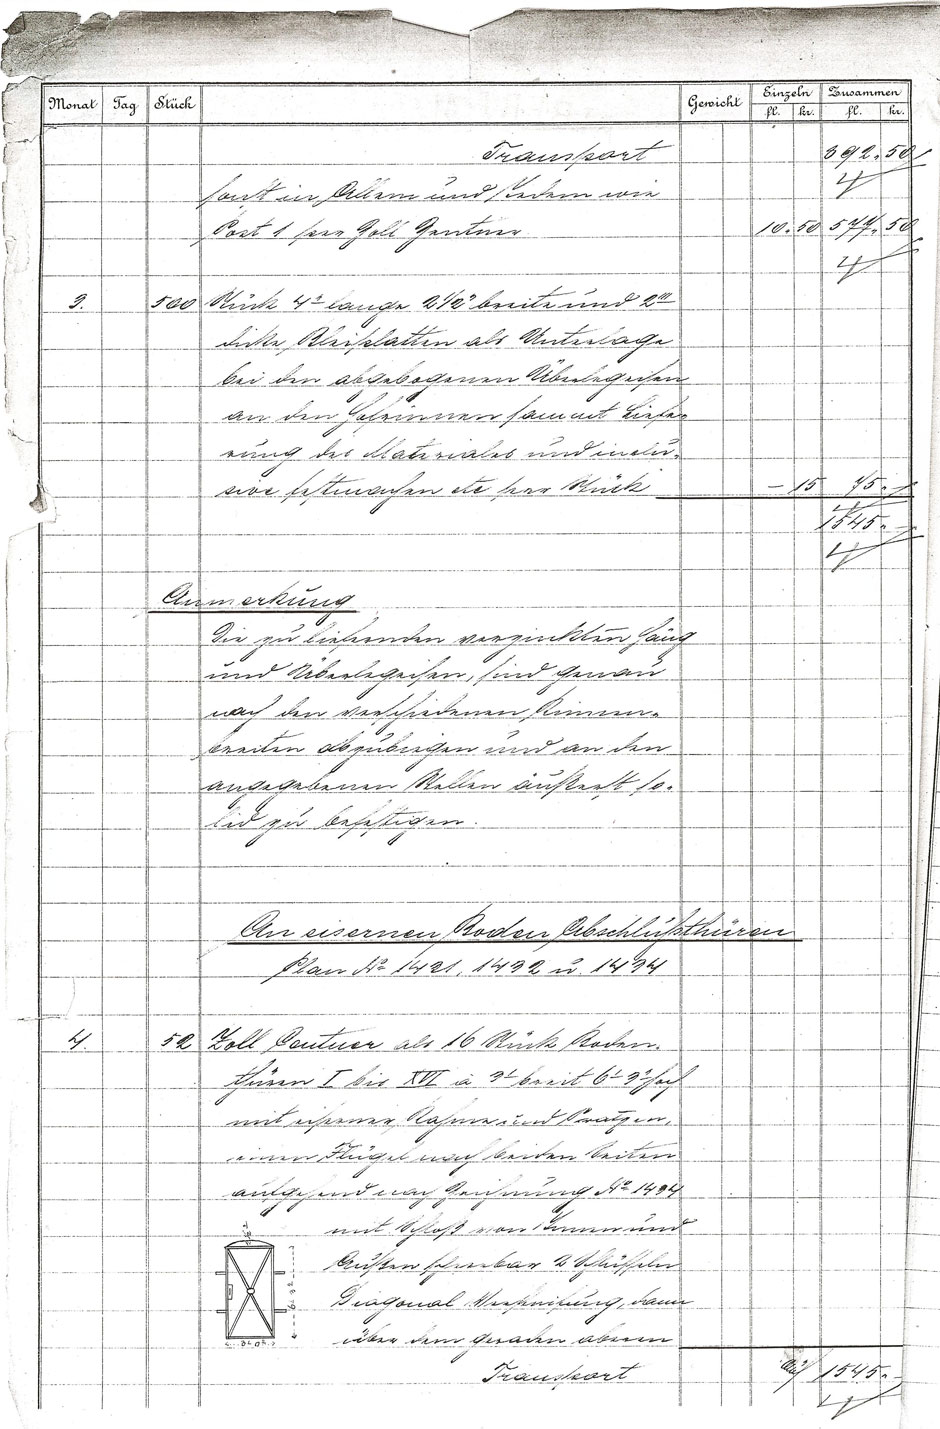 Monat Tag Stück Gewicht Einzeln Zusammen
fl. kr. fl. kr.
Transport 892.50
sonst in Allem und Jedem wie
Post 1 per Zoll Zentner 10.50 577.50
3. 500 Stück 4" lange 2 1/2" breite und 2'''
dicke Bleiplatten als Unterlage
bei den abgebogenen Überlegeisen
an den Holrinnen sammt Liefe-
rung des Materiales und inclu-
sive festmachen etc per Stück – 15 75.–
1545.–
Anmerkung
Die zu liefernden verzinkten Häng
und Überlegeisen, sind genau
nach den verschiedenen Rinnen-
breiten abzubiegen und an den
angegebenen Stellen äußerst so-
lid zu befestigen.
An eisernen Boden Abschlußthüren
Plan No 1431, 1432 u 1434
4. 52 Zoll Centner als 16 Stück Boden-
thüren I bis XVI à 3' breit 6' 3" hoch
mit eiserner Rahme und Pratzen,
einen Flügel nach beiden Seiten
aufgehend nach Zeichnung No 1434
mit Schloß von Innen und
Außen sperrbar 2 Schlüsseln
Diagonal Verstreifung, dann
über dem geraden oberen
6' 3"
3' 0"
Transport 1545.–